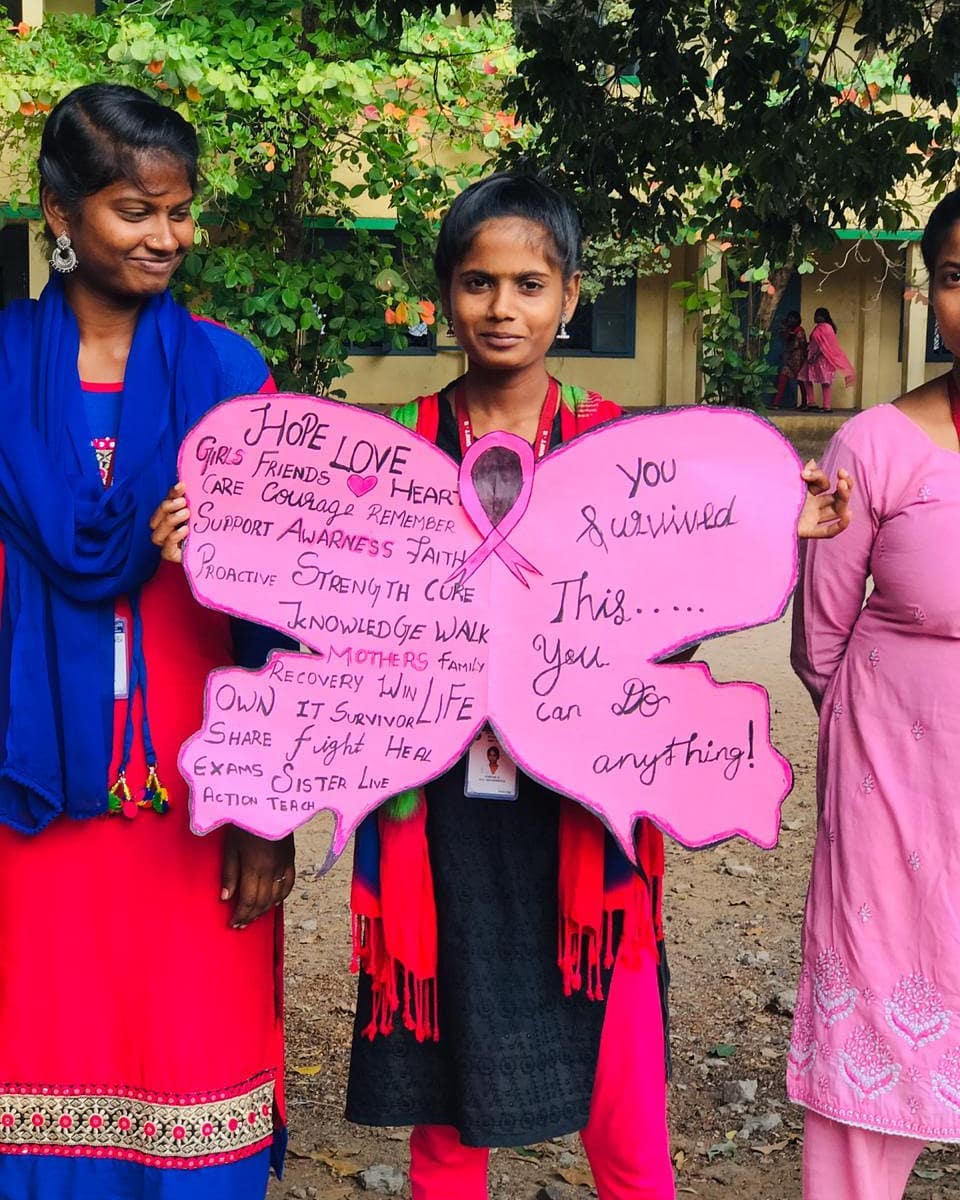 HOPE LOVE
GIRLS FRIENDS HEART
CARE Courage REMEMBER
SUPPORT AWARNESS FAITH
PROACTIVE STRENGTH CURE
KNOWLEDGE WALK
MOTHERS FAMILY
RECOVERY WIN LIFE
OWN IT SURVIVOR
SHARE fight HEAL
EXAMS SISTER LIVE
ACTION TEACH
YOU
Survived
This.....
You
can Do
anything!